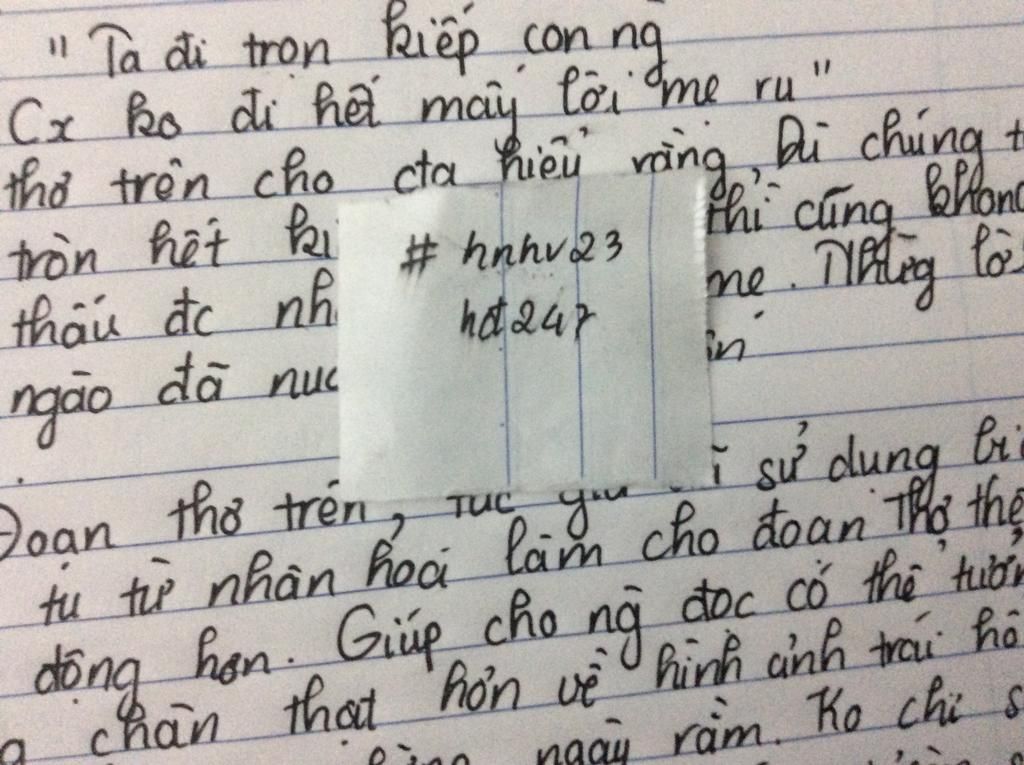 " Ta đi trọn kiếp con ng
Cx ko đi hết mấy lời mẹ ru"
thơ trên cho cta hiểu rằng, Dù chúng t
tròn hết ki thì cũng không
thấu đc nh mẹ. Những lờ
ngào đã nuc in
# hnhv23
hđ247
Đoạn thơ trên, sử dụng bi
tu từ nhân hoá làm cho đoạn thơ thê
động hơn. Giúp cho ng đọc có thể tưởn
chân thật hơn về hình ảnh trái hô
ngày rằm. Ko chỉ s